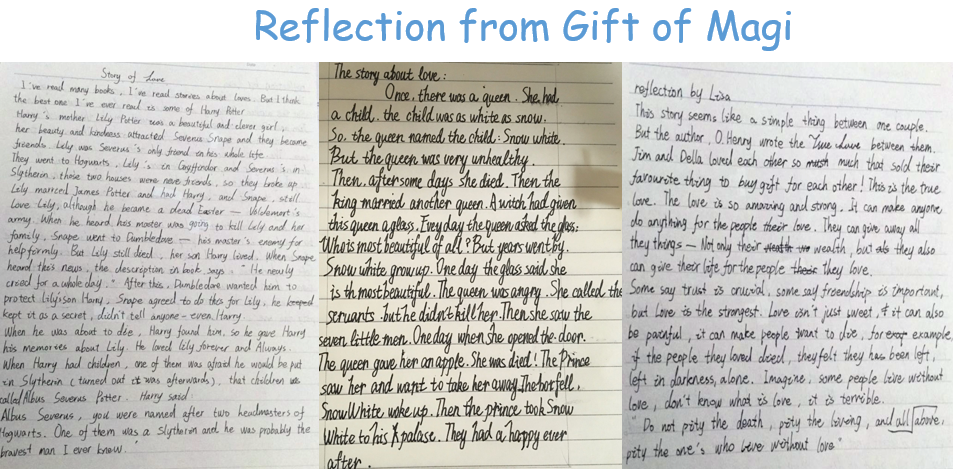 Reflection from Gift of Magi
Story of Love
I've read many books, I've read stories about loves. But I think
the best one I've ever read is some of Harry Potter
Harry's mother Lily Potter was a beautiful and clever girl.
her beauty and kindness attracted Severus Snape and they became
friends. Lily was Severus's only friend in his whole life
They went to Hogwarts, Lily's in Gryffindor and Severus's in
Slytherin, those two houses were never friends, so they broke up
Lily married James Potter and had Harry, and Snape still
Love Lily, although he became a dead Eater — Voldemort's
army. When he heard his master was going to kill Lily and her
family, Snape went to Dumbledore — his master's enemy for
help formly. But Lily still died, her son Harry lived. When Snape
heard this news, the description in book says, "He nearly
cried for a whole day." After this, Dumbledore wanted him to
protect Lily's son Harry, Snape agreed to do this for Lily, he
kept it as a secret, didn't tell anyone — even Harry
When he was about to die, Harry found him, so he gave Harry
his memories about Lily. He loved Lily forever and Always.
When Harry had children, one of them was afraid he would be put
in Slytherin (turned out it was afterwards), that children
called Albus Severus Potter. Harry said:
Albus Severus, you were named after two headmasters of
Hogwarts. One of them was a Slytherin and he was probably the
bravest man I ever know.
The story about love:
Once, there was a queen. She had
a child. the child was as white as snow.
So, the queen named the child: Snow white.
But the queen was very unhealthy.
Then, after some days she died. Then the
king married another queen. A witch had given
this queen a glass. Evey day the queen asked the glass:
Who's most beautiful of all? But years went by.
Snow white grow up. One day the glass said she
is th most beautiful. The queen was angry. She called the
servants. but he didn't kill her. Then she saw the
seven little men. One day when she opened the door.
The queen gave her an apple. She was died! The Prince
saw her and want to take her away. The box fell,
Snow White, woke up. Then the prince took Snow
White to his palase. They had a happy ever
after.
reflection by Lisa
This story seems like a simple thing between one couple.
But the author, O. Henry wrote the True Love between them.
Jim and Della loved each other so much that sold their
favourite thing to buy gift for each other! This is the true
love. The love is so amazing and strong. It can make anyone
do anything for the people their love. They can give away all
they things — Not only their wealth, but they also
can give their life for the people they love.
Some say trust is crucial, some say friendship is important,
but Love is the strongest. Love isn't just sweet, it can also
be painful, it can make people want to die, for example
if the people they loved died, they felt they has been left,
left in darkness, alone. Imagine, some people live without
love, don't know what is love, it is terrible.
Do not pity the death, pity the living, and all above,
pity the one's who live without love"